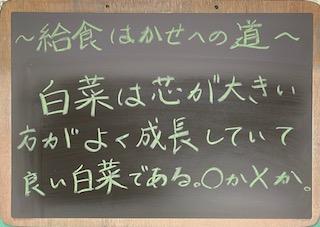 ～給食はかせへの道～
白菜は芯が大きい
方がよく成長していて
良い白菜である。○か×か。